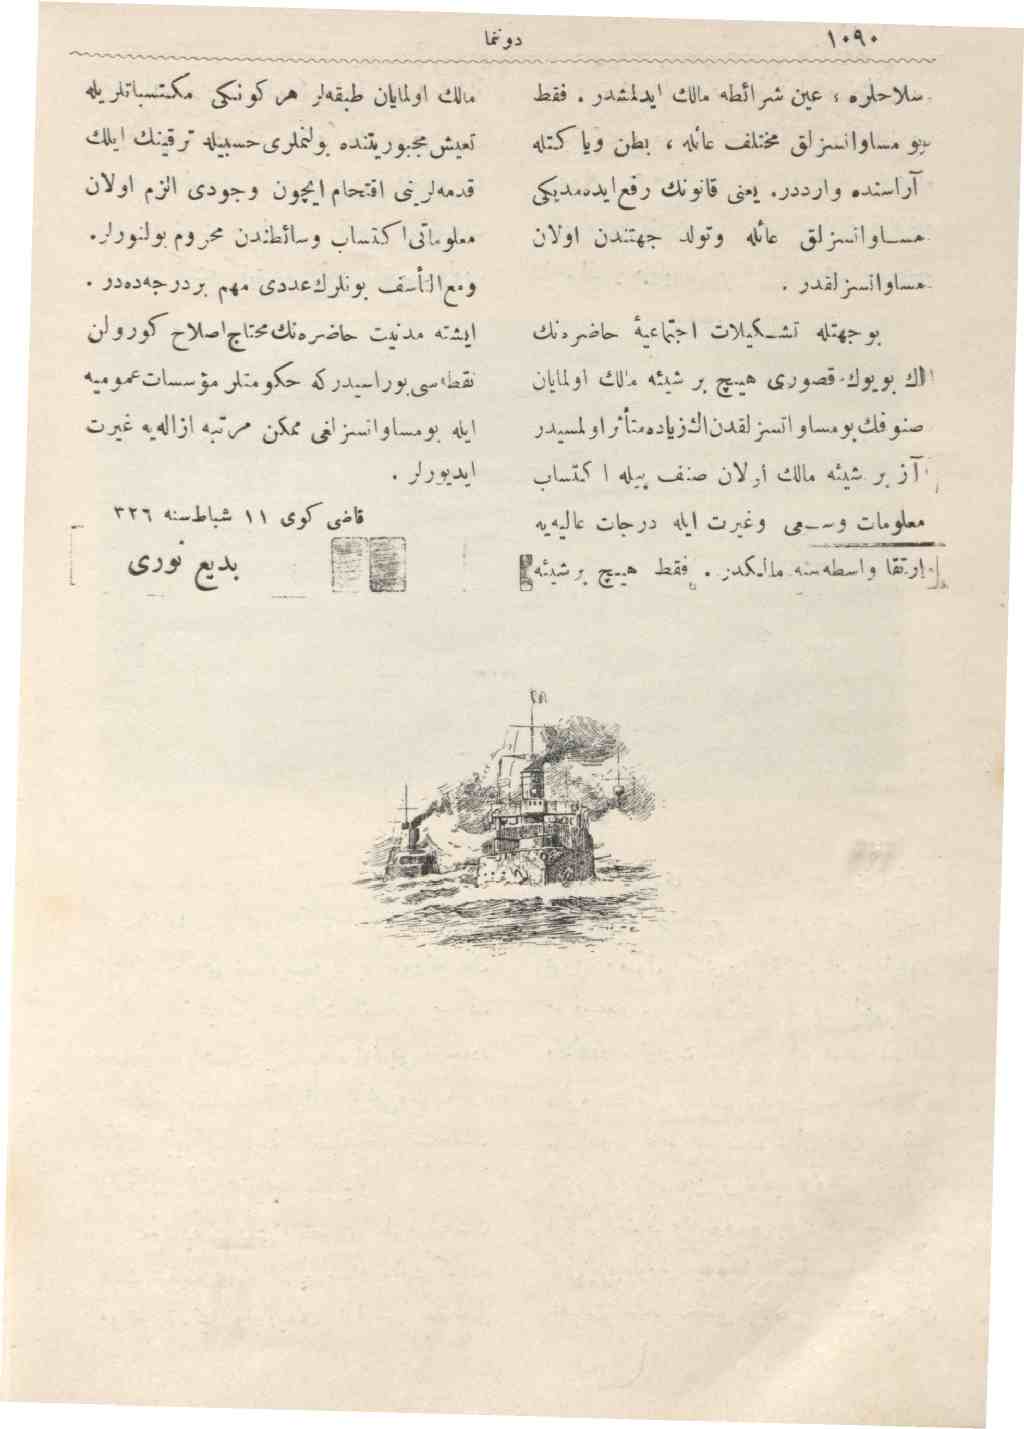 ١٠٩٠
دوننما
سلاحلره ، عين شرائطه مالك ايدلمشدر . فقط
بو مساواتسزلق مختلف عائله ، بطن ويا كتله
آراسنده واردر. يعنى قانونك رفع ايده‌مديكى
مساواتسزلق عائله وتولد جهتندن اولان
مساواتسزلقدر .
بو جهتله تشكيلات اجتماعيهٔ حاضره‌نك
اك بويوك قصورى هيچ بر شيئه مالك اولمايان
صنوفك بو مساواتسزلقدن اك زياده متأثر اولمسيدر
آز بر شيئه مالك اولان صنف بيله اكتساب
معلومات وسعى وغيرت ايله درجات عاليه‌يه
ارتقا واسطه‌سنه مالكدر . فقط هيچ بر شيئه
مالك اولمايان طبقه‌لر هر كونكى مكتسباتلريله
تعيش مجبوريتنده بولنملرى حسبيله ترقينك ايلك
قدمه‌لرينى اقتحام ايچون وجودى الزم اولان
معلوماتى اكتساب وسائطندن محروم بولنورلر.
ومع التأسف بونلرك عددى مهم بر درجه‌ده‌در .
ايشته مدنيت حاضره‌نك محتاج اصلاح كورولن
نقطه‌سى بوراسيدركه حكومتلر مؤسسات عموميه
ايله بو مساواتسزلغى ممكن مرتبه ازاله‌يه غيرت
ايديورلر .
قاضى كوى ١١ شباط سنه ٣٢٦
بديع نورى